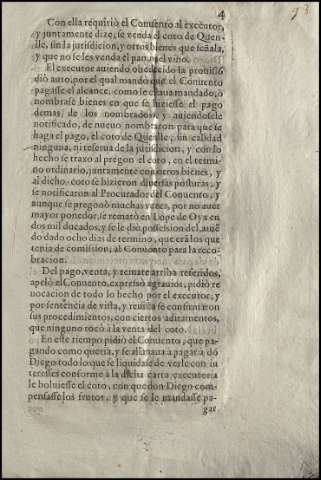 4
Con ella requirió el Conuento al executor,
y juntamente dize, se venda el coto de Quen-
lle, sin la jurisdicion, y otros bienes que señala,
y que no se les venda el pan, ni el vino.
El executor auiendo obedecido la prouisió
dió auto, por el qual mandó que el Conuento
pagasse el alcance, como le estaua mandado, ó
nombrasse bienes en que se hiziesse el pago
demas de los nombrados, y auiendosele
notificado, de nueuo nombraron para que se
haga el pago, el coto de Quenlle, sin calidad
ninguna, ni reserua de la jurisdicion, y con lo
hecho se traxo al pregon el coto, en el termi-
no ordinario, juntamente con otros bienes, y
al dicho coto se hizieron diuersas posturas, y
se notificaron al Procurador del Conuento, y
aunque se pregonò muchas vezes, por no auer
mayor ponedor, se rematò en Lope de Oya en
dos mil ducados, y se le diò possession del, auié
do dado ocho dias de termino, que erá los que
tenia de comission, al Conuento para la co-
bracion.
Del pago, venta, y remate arriba referidos,
apelò el Conuento, expresò agrauios, pidiò re
uocacion de todo lo hecho por el executor, y
por sentencia de vista, y reuista se confirmaron
sus procedimientos, con ciertos aditamentos,
que ninguno tocò à la venta del coto.
En este tiempo pidiò el Conuento, que pa-
gando como queria, y se allanaua à pagar à dó
Diego todo lo que se liquidasse deverle con in
teresses conforme à la dicha carta executoria
le boluiesse el coto, con que don Diego com-
pensasse los frutos, y que se le mandasse pa-
gar